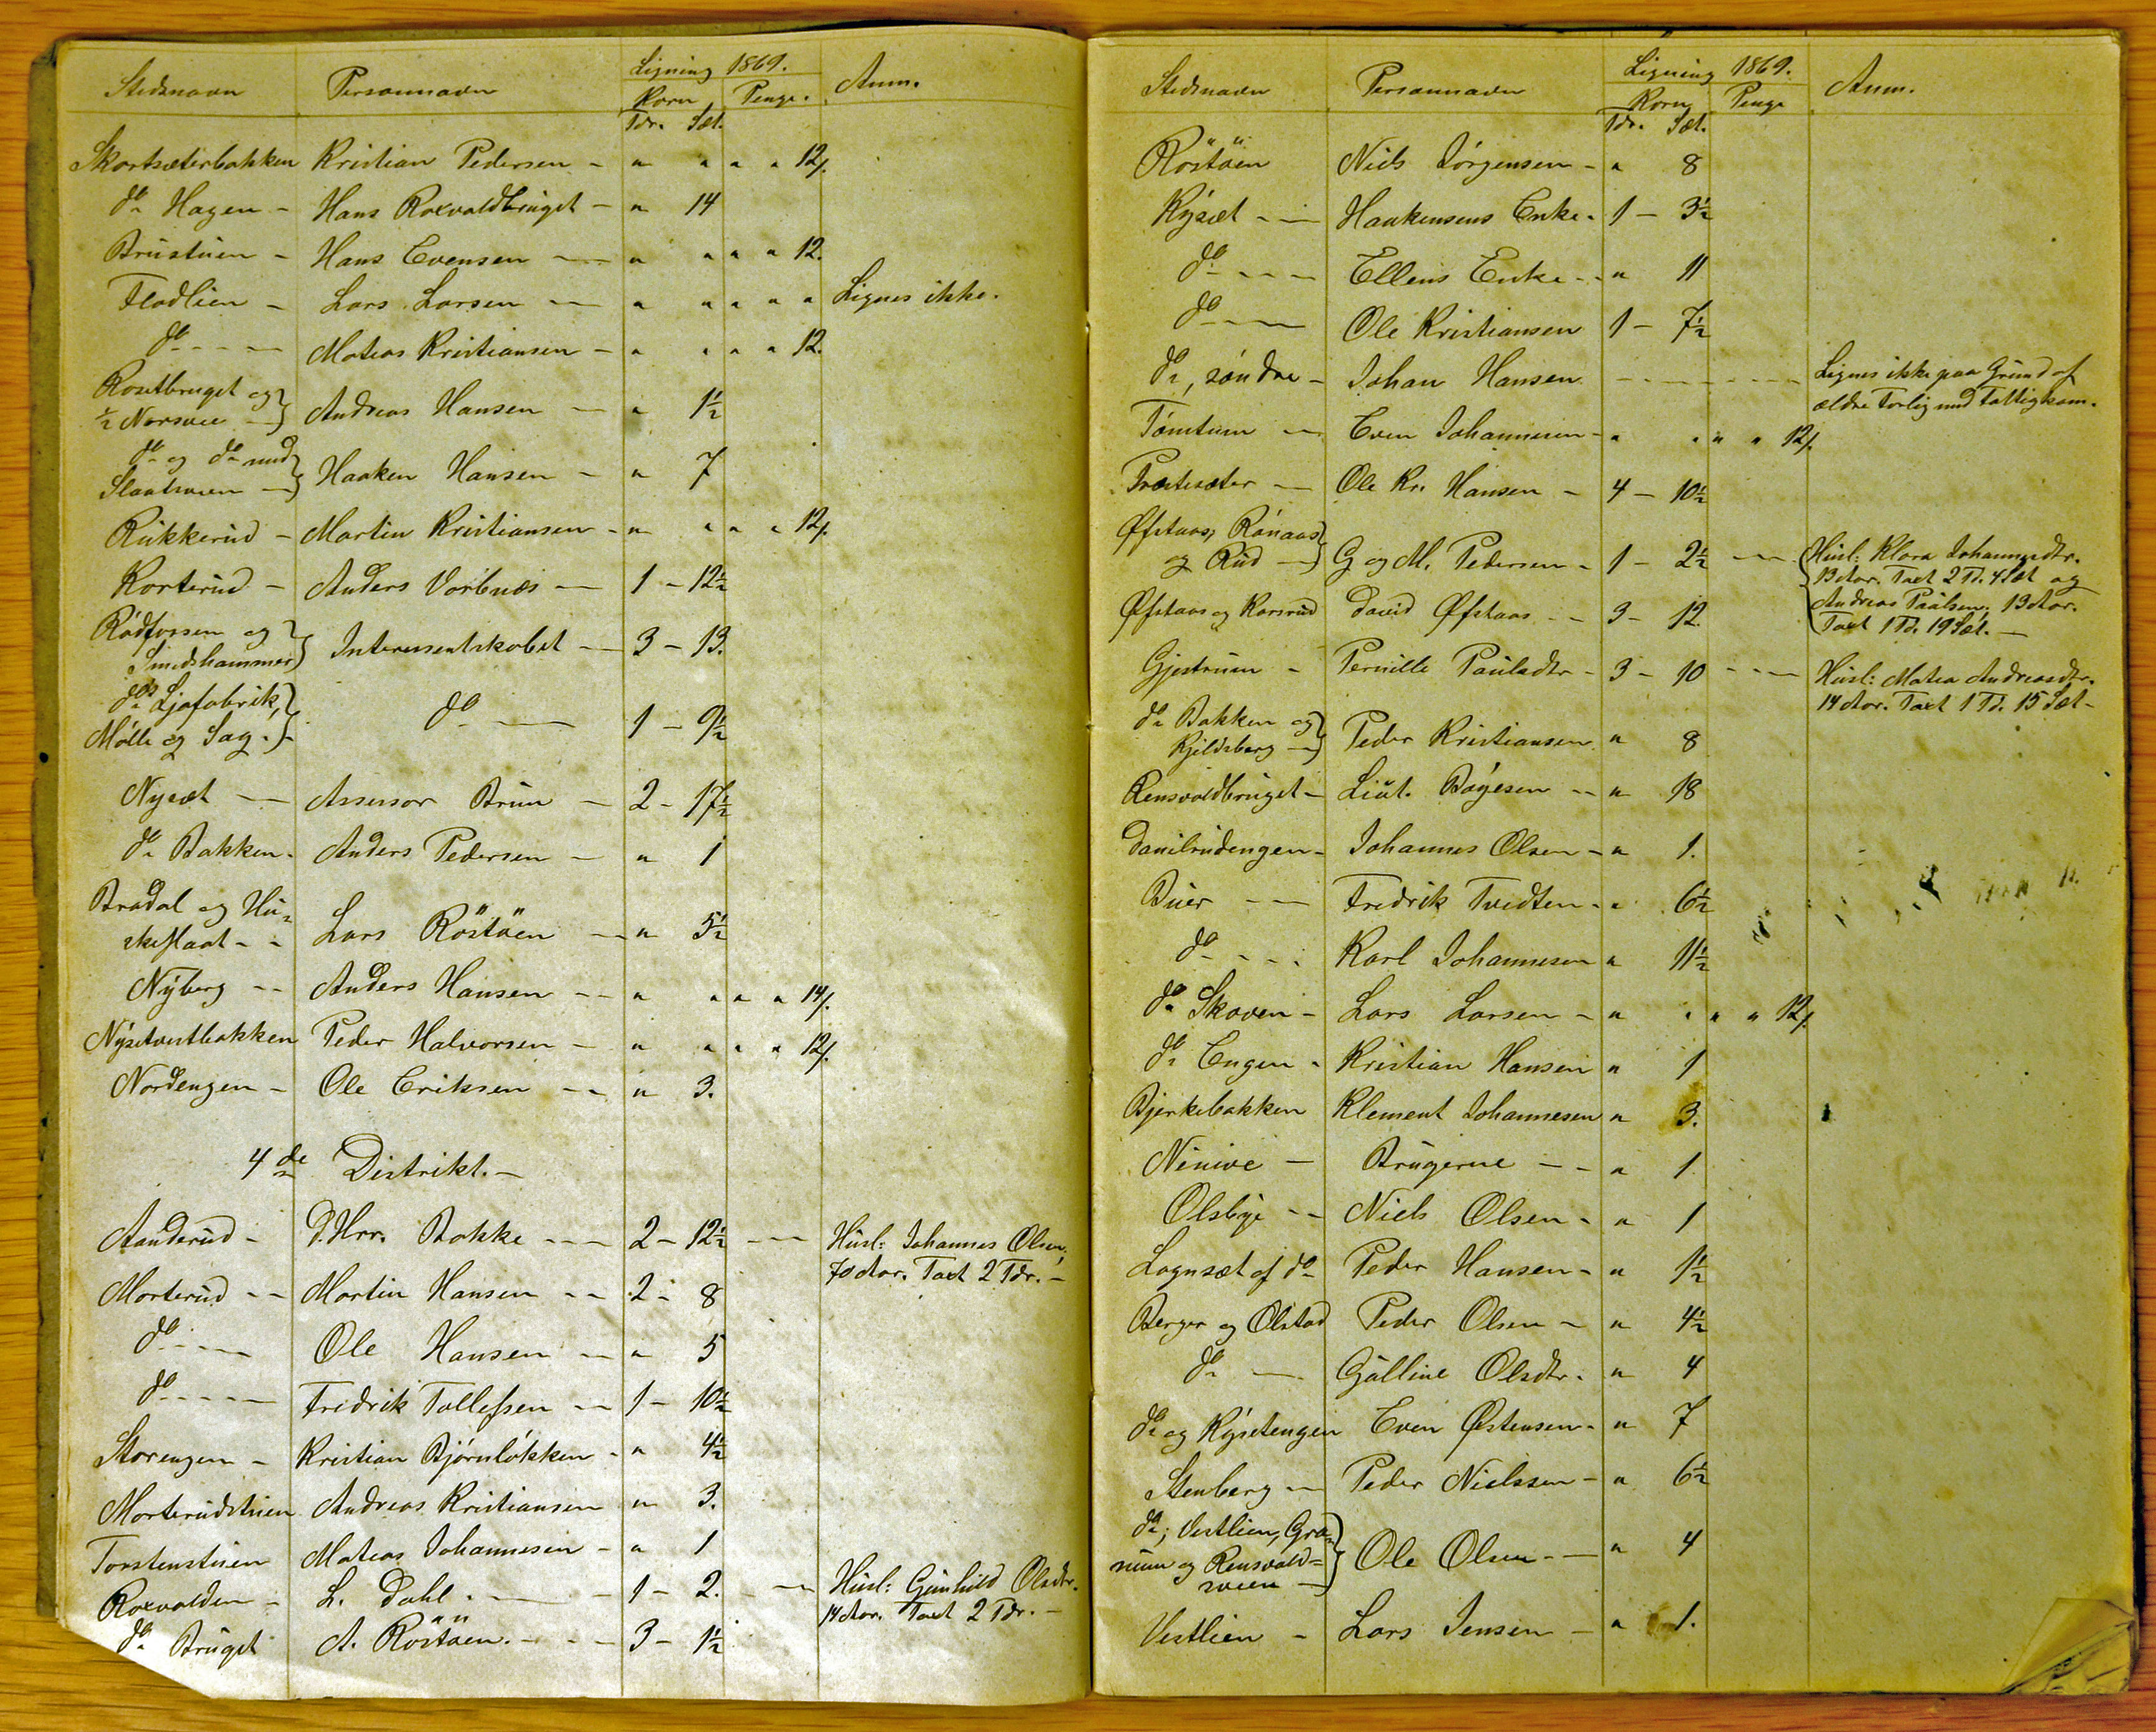 Stedsnavn Personnavn Ligning 1869. Anm.
Korn Penge.
Tdr. Sæt.
Skartsæterbakken Kristian Pedersen - " " " " 12/.
do Hagen - Hans Roxvaldbruget - " 14
Brustuen - Hans Evensen - " " " " 12.
Flodlien - Lars Larsen - " " " " Lignes ikke.
do - - - Mateas Kristiansen - " " " " 12.
Rosetbruget og
½ Norsvee - Andreas Hansen - " 1½
do og do med
Slaatsveen - Haaken Hansen - " 7
Rukkerud - Martin Kristiansen - " " " " 12/.
Korterud - Anders Vorbnæs - 1 - 12½
Rödfossen og
Smedshammer Interessentskabet - 3 - 13.
dos Ljafabrik,
Mölle og Sag. - do - 1 - 9½
Nysæt - Assessor Brun - 2 - 17½
do Bakken. Anders Pedersen - " 1
Bradal og Hu=
skeslaat - - Lars Röstöen - " 5½
Nyberg - - Anders Hansen - - " " " " 14/.
Nysetvestbakken Peder Halvorsen - " " " " 12/.
Nordengen - Ole Eriksen - - " 3.
4de Distrikt. -
Aanderud - P. Hrr. Bakke - - - 2 - 12½ - - Husl: Johannes Olsen,
70 Aar. Taxt 2 Tdr. -
Morterud - - Martin Hansen - - 2 - 8
do - - - Ole Hansen - - " 5
do - - - - Fredrik Tollefsen - - 1 - 10½
Storengen - Kristian Björnlökken - " 4½
Morterudstuen Andreas Kristiansen " 3.
Torstenstuen Mateas Johannesen - " 1
Roxvalden - L. Dahl. - 1 - 2. - Husl: Gunhild Olsdtr.
14 Aar. Taxt 2 Tdr. -
do Bruget A. Röstöen. - - 3 - 1½
Stedsnavn Personnavn Ligning 1869. Anm.
Korn Penge
Tdr. Sæt.
Röstöen Niels Jörgensen - " 8
Rysæt - - Haakensens Enke - 1 - 3½
do - - - Ellens Enke - - " 11
do - - Ole Kristiansen 1 - 7½
do, söndre - Johan Hansen - - - - - - Lignes ikke paa Grund af
ældre Forlig med Fattigkom.
Tömtum - Even Johannesen - " " " " 12/.
Præstesæter - Ole Kr. Hansen - 4 - 10½
Øfstaas, Rönaas
og Rud - G og M. Pedersen - 1 - 2½ - Husl: Klara Johannesdtr.
13 Aar. Taxt 2 Td. 4 Sæt og
Øfstaas og Korsrud David Øfstaas - - 3 - 12. Andreas Paulsen. 13 Aar.
Taxt 1 Td. 19 Sæt. -
Gjestrum - Pernille Paulsdtr - 3 - 10 - - - Husl: Matea Andreasdtr.
14 Aar. Taxt 1 Td. 15 Sæt -
do Bakken og
Kjeldsberg - Peder Kristiansen " 8
Rensvoldbruget - Liut. Böyesen - - " 18
Danilrudengen - Johannes Olsen - " 1.
Buer - - Fredrik Tvedten - " 6½
do - - - Karl Johannesen " 11½
do Skoven - Lars Larsen - " " " " 12/.
do Engen - Kristian Hansen " 1
Bjerkebakken Klement Johannesen " 3.
Ninive - Brugerne - - " 1
Olsbye - - Niels Olsen - " 1
Lognsæt af do Peder Hansen - " 1½
Berger og Olstad Peder Olsen - " 4½
do - Gulline Olsdtr. - " 4
do og Rysetengen Even Østensen - " 7
Stenberg - Peder Nielssen - " 6½
do; Vestlien, Gra=
num og Rensvold=
sveen - Ole Olsen - - " 4
Vestlien - Lars Jensen - " 1.